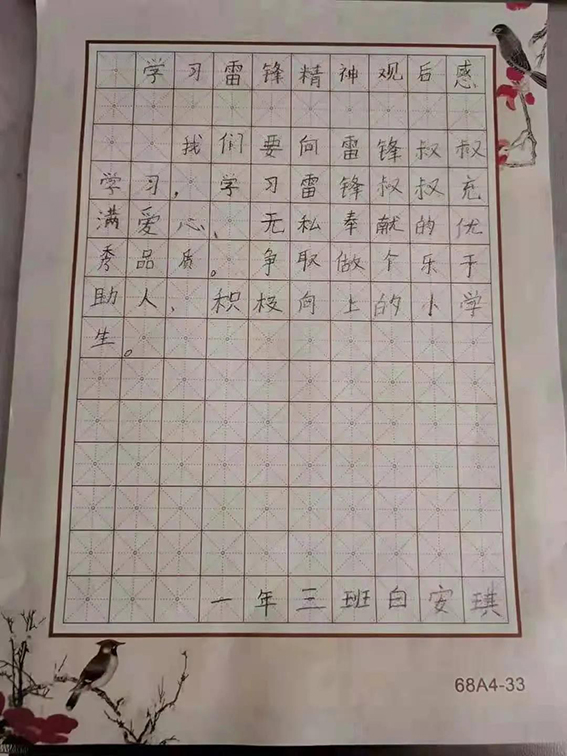 学习雷锋精神观后感
我们要向雷锋叔叔
学习，学习雷锋叔叔充
满爱心、无私奉献的优
秀品质。争取做个乐于
助人，积极向上的小学
生。
一年三班白安琪
68A4-33